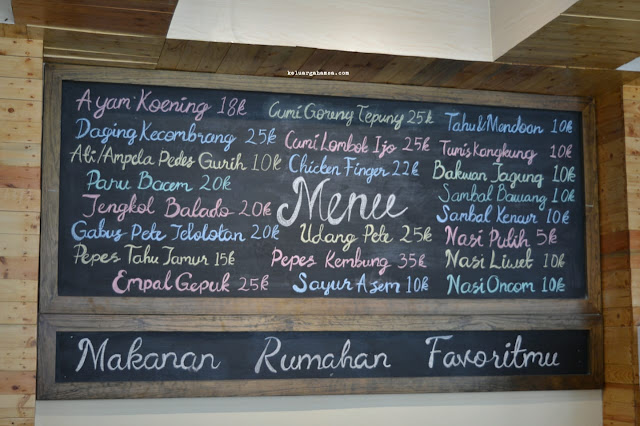 keluargahamsa.com
Ayam Koening 18k
Daging Kecombrang 25k
Ati/Ampela Pedes Gurih 10k
Paru Bacem 20k
Jengkol Balado 20k
Gabus Pete Telolotan 20k
Pepes Tahu Jamur 15k
Empal Gepuk 25k
Cumi Goreng Tepung 25k
Cumi Lombok Ijo 25k
Chicken Finger 22k
Menu
Udang Pete 25k
Pepes Kembung 35k
Sayur Asem 10k
Tahu & Mendoan 10k
Tumis Kangkung 10k
Bakwan Jagung 10k
Sambal Bawang 10k
Sambal Kencur 10k
Nasi Putih 5k
Nasi Liwet 10k
Nasi Oncom 10k
Makanan Rumahan Favoritmu